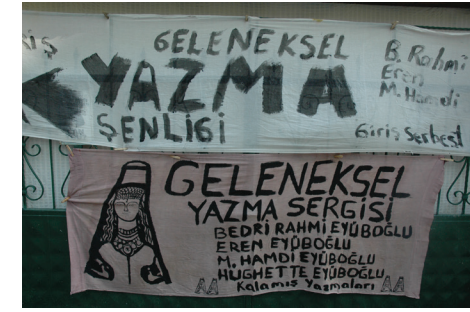 GİRİŞ
GELENEKSEL
YAZMA
ŞENLİGİ
B. Rahmi
Eren
M. Hamdi
Giriş Serbest
GELENEKSEL
YAZMA SERGİSİ
BEDRİ RAHMİ EYÜBOĞLU
EREN EYÜBOĞLU
M. HAMDİ EYÜBOĞLU
HUGHETTE EYÜBOĞLU
Kalamış Yazmaları